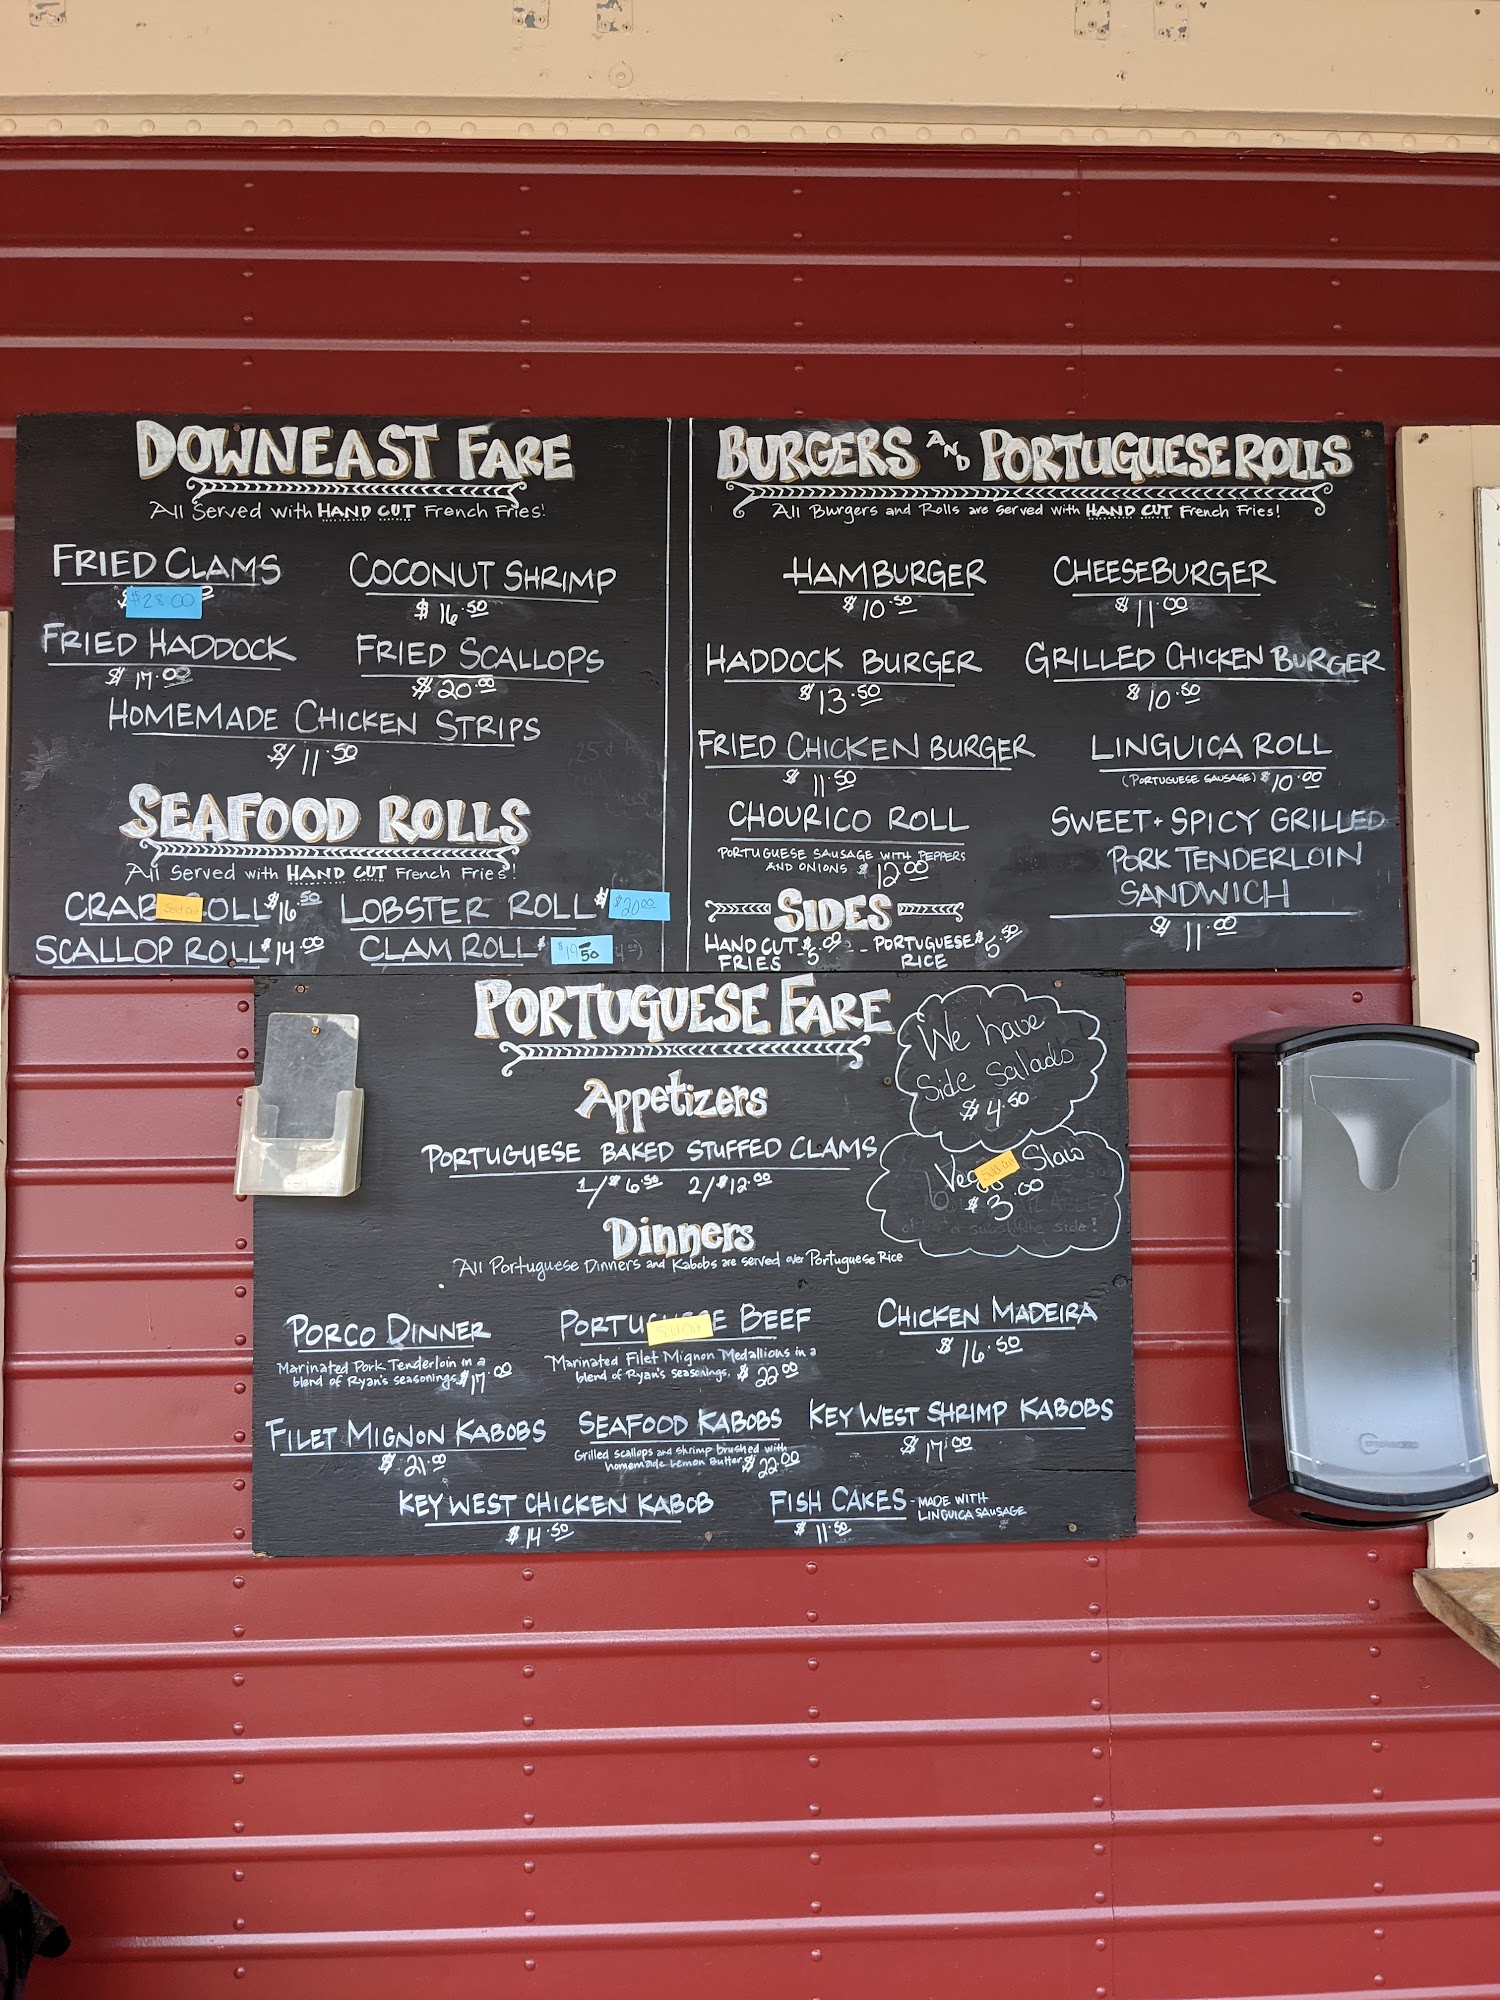 DOWNEAST FARE
All Served with HAND CUT French Fries!
FRIED CLAMS
$28.00
COCONUT SHRIMP
$16.50
FRIED HADDOCK
$17.00
FRIED SCALLOPS
$20.00
HOMEMADE CHICKEN STRIPS
$11.50
SEAFOOD ROLLS
All Served with HAND CUT French Fries!
CRAB Sold Out OLL $16.50
LOBSTER ROLL $ $20.00
SCALLOP ROLL $14.00
CLAM ROLL $ $19.50
BURGERS AND PORTUGUESE ROLLS
All Burgers and Rolls are served with HAND CUT French Fries!
HAMBURGER
$10.50
CHEESEBURGER
$11.00
HADDOCK BURGER
$13.50
GRILLED CHICKEN BURGER
$10.50
FRIED CHICKEN BURGER
$11.50
LINGUICA ROLL
(PORTUGUESE SAUSAGE) $10.00
CHOURICO ROLL
PORTUGUESE SAUSAGE WITH PEPPERS
AND ONIONS $12.00
SWEET + SPICY GRILLED
PORK TENDERLOIN
SANDWICH
$11.00
SIDES
HAND CUT FRIES $5.00
PORTUGUESE RICE $5.50
PORTUGUESE FARE
We have
Side Salads
$4.50
Appetizers
PORTUGUESE BAKED STUFFED CLAMS
1/$6.50 2/$12.00
Sold Out Slaw
$3.00
Dinners
All Portuguese Dinners and Kabobs are served over Portuguese Rice
PORCO DINNER
Marinated Pork Tenderloin in a
blend of Ryan's seasonings. $17.00
PORTUGUESE BEEF
Sold Out
Marinated Filet Mignon Medallions in a
blend of Ryan's seasonings. $22.00
CHICKEN MADEIRA
$16.50
FILET MIGNON KABOBS
$21.00
SEAFOOD KABOBS
Grilled scallops and shrimp brushed with
homemade Lemon Butter $22.00
KEY WEST SHRIMP KABOBS
$17.00
KEY WEST CHICKEN KABOB
$14.50
FISH CAKES - MADE WITH
LINGUICA SAUSAGE
$11.50